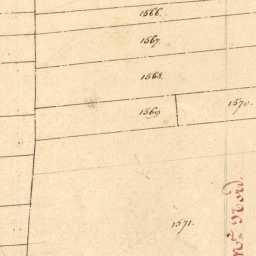 1566.
1567.
1568.
1569
1570.
1571.
Nord.